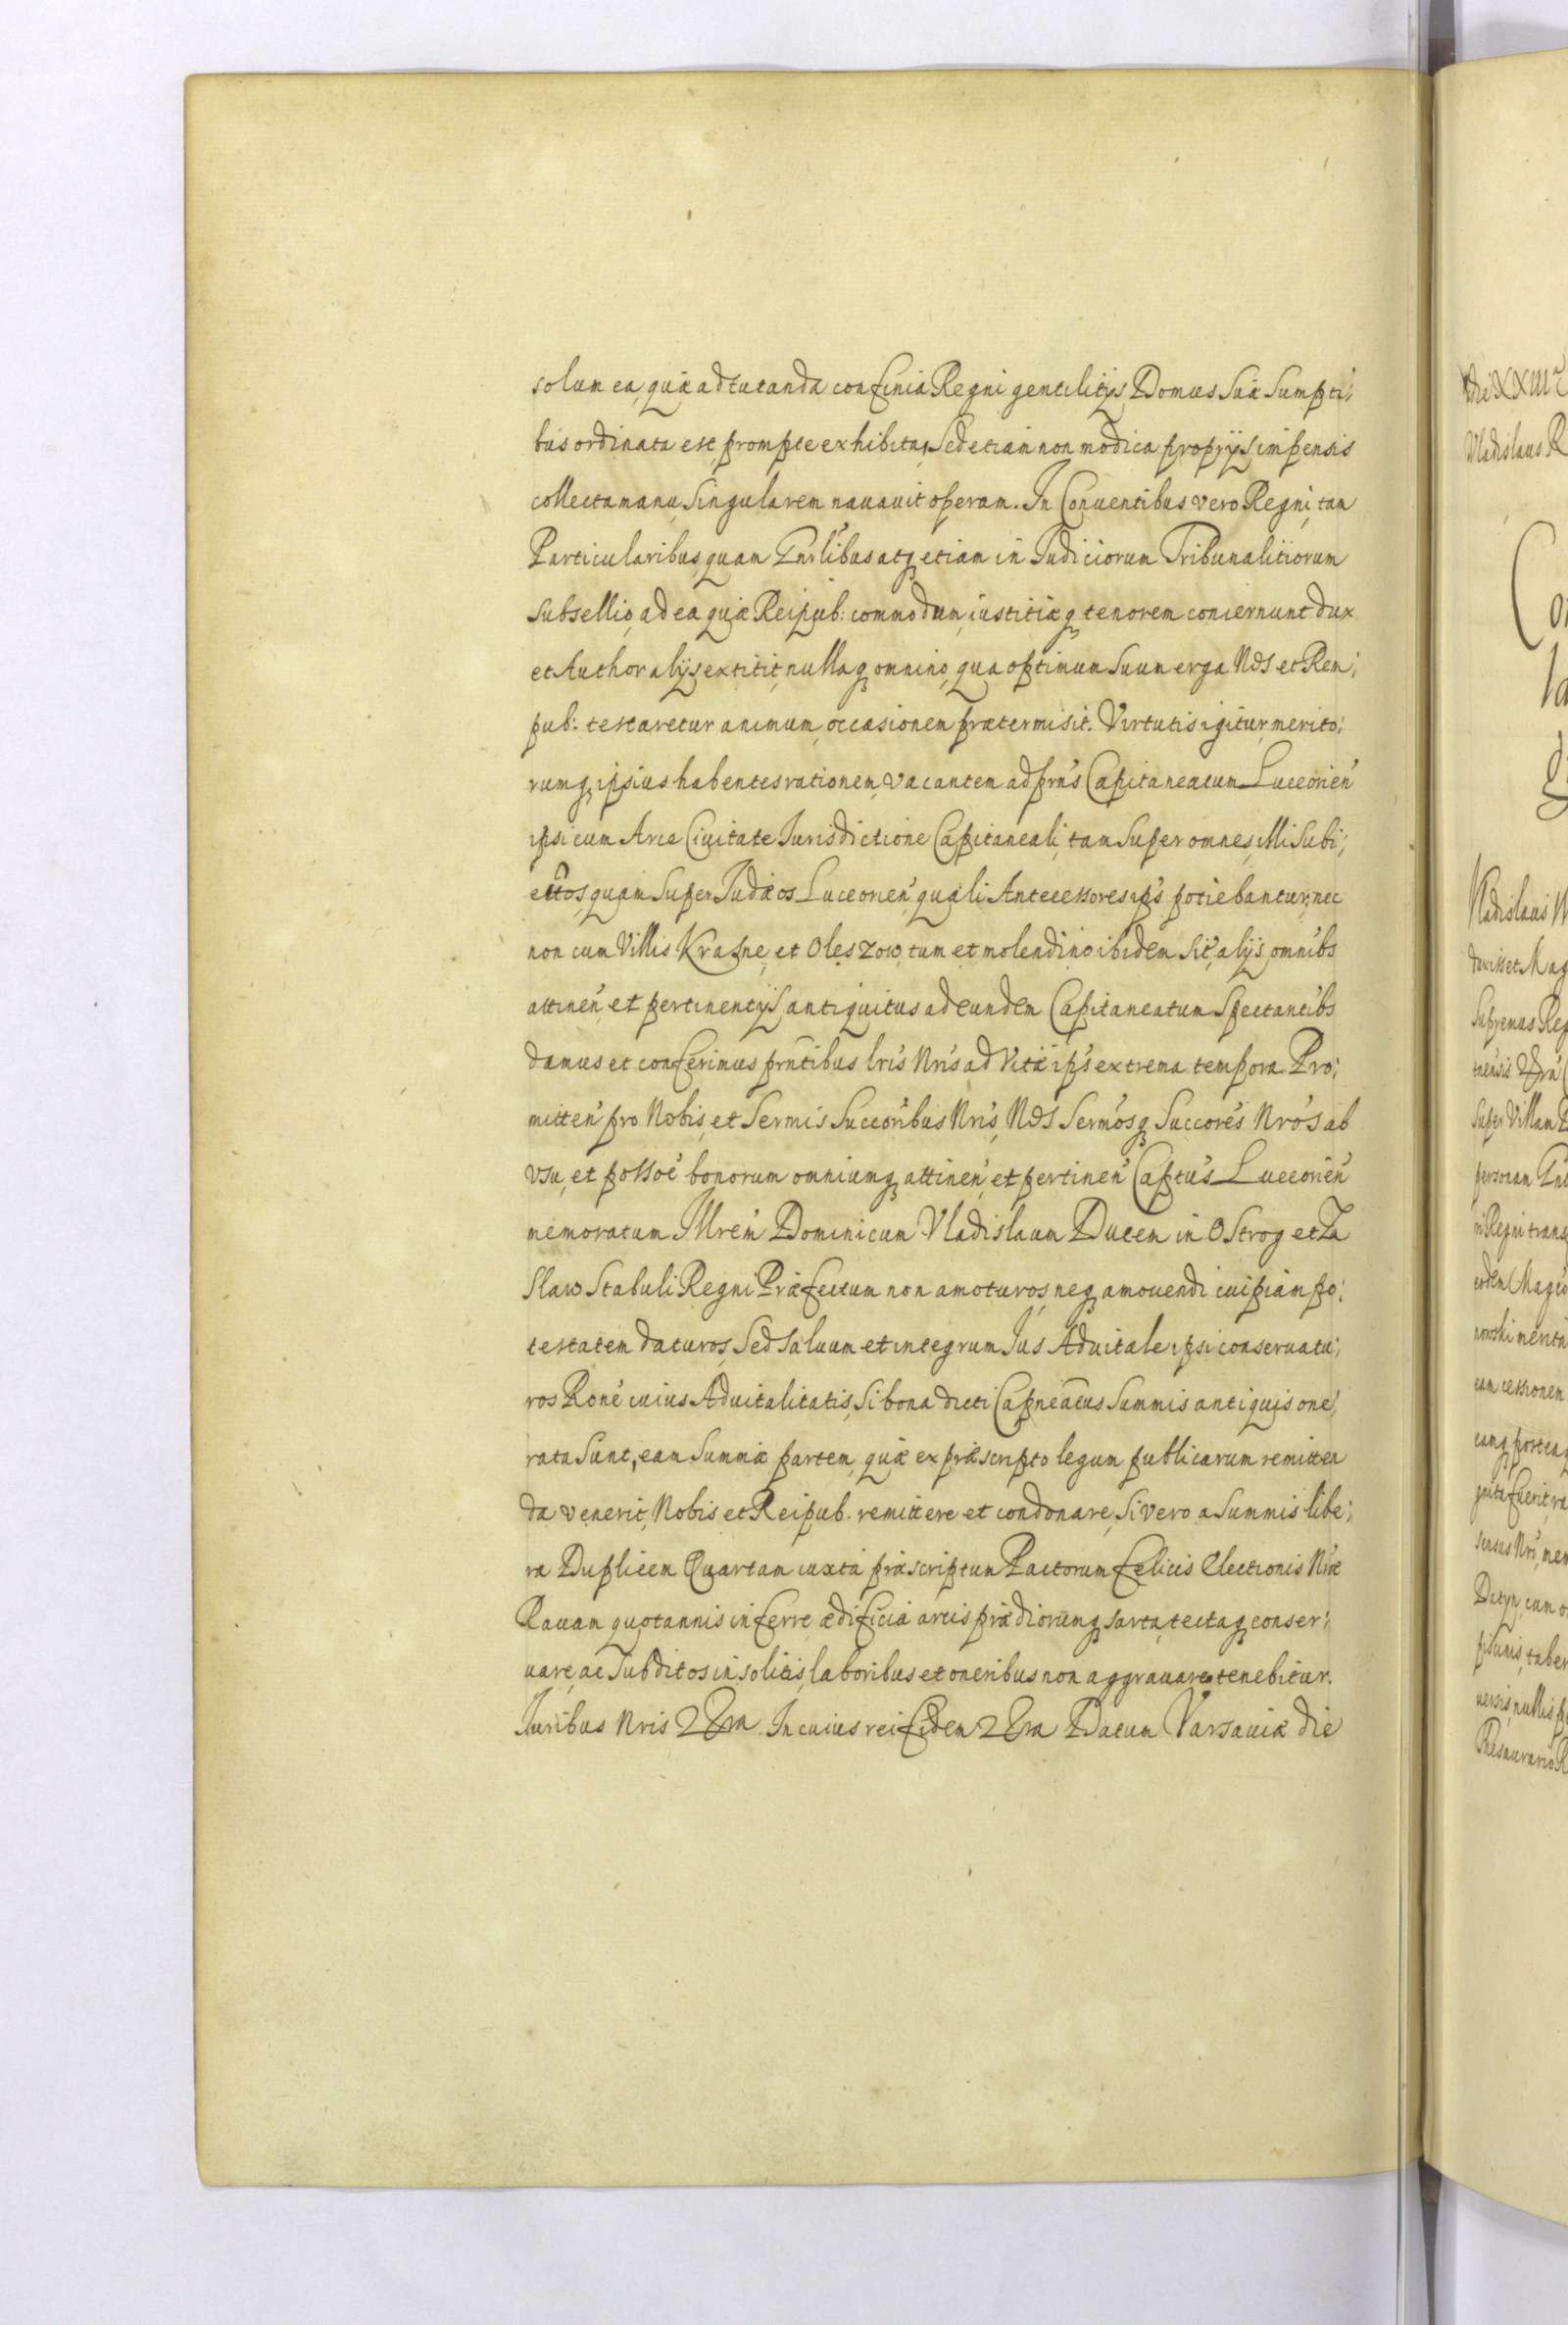 solum ea, quæ ad tutanda confinia Regni gentilitijs Domus Suæ Sumpti;
bus ordinata est, prompte exhibita, Sed etiam non modica proprijs impensis
collecta manu Singularem nauauit operam. In Conuentibus vero Regni, tam
Particularibus quam Gnrlibus atq etiam in Judiciorum Tribunalitiorum
Subsellio, ad ea quæ Reipub: commodum, iustitiæq tenorem concernunt dux
et Author alijs extitit, nullaq omnino, qua optimum Suum erga Nos et Rem;
pub: testaretur animum, occasionem prætermisit. Virtutis igitur, merito;
rumq ipsius habentes rationem, vacantem ad prns Capitaneatum Luceorien
ipsi cum Arce Ciuitate Jurisdictione Capitaneali, tam Super omnes, illi Subi;
ectos, quam Super Judæos Luceorien, quali Antecessores ips potiebantur, nec
non cum Villis Krasne, et Oleszow, tum et molendino ibidem Sit, alijs omnibs
attinen, et pertinentijs antiquitus ad eundem Capitaneatum Spectantibs
damus et conferimus prntibus lris Nris ad Vitæ ips extrema tempora. Pro;
mitten pro Nobis, et Sermis Succoribus Nris, Nos Sermosq Succores Nros ab
vsu, et possoe bonorum omniumq attinen, et pertinen Captus Luceorien
memoratum Illrem Dominicum Vladislaum Ducem in Ostrog et Za
Slaw Stabuli Regni Præfectum non amoturos, neq amouendi cuipiam po;
testatem daturos, Sed Saluum et integrum Jus Aduitale ipsi conseruatu;
ros Rone cuius Aduitalitatis, Si bona dicti Capneatus Summis antiquis one;
rata Sunt, eam Summæ partem, quæ ex præscripto legum publicarum remitten
da venerit, Nobis et Reipub. remittere et condonare, Si vero a Summis libe;
ra Duplicem Quartam iuxta præscriptum Pactorum felicis Electionis Nræ
Rauam quotannis inferre ædificia arcis prædiorumq sarta, tectaq conser;
uare, ac Subditos insolitis, laboribus et oneribus non aggrauare tenebitur.
Juribus Nris 2 Era. In cuius rei fidem 2 Era Datum Varsauiæ die